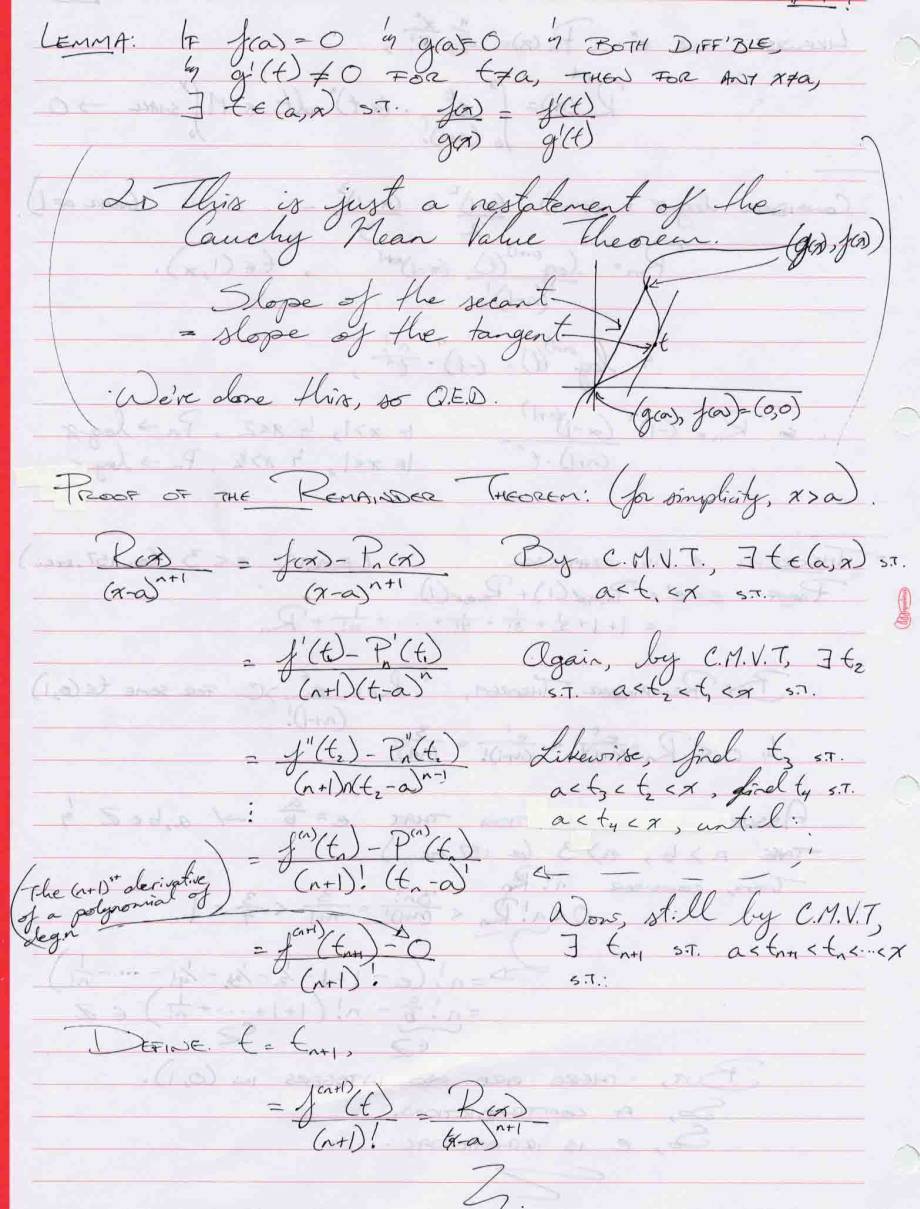 LEMMA: IF f(a) = 0 & g(a) = 0 & BOTH DIFF'BLE,
& g'(t) ≠ 0 FOR t≠a, THEN FOR ANY x≠a,
∃ t ∈ (a,x) s.t. f(x)/g(x) = f'(t)/g'(t)
↳ This is just a restatement of the
Cauchy Mean Value Theorem.
(g(x), f(x))
Slope of the secant
= slope of the tangent
t
We've done this, so Q.E.D.
(g(a), f(a)) = (0,0)
PROOF OF THE REMAINDER THEOREM: (for simplicity, x>a).
R(x)/(x-a)^{n+1} = f(x) - P_n(x)/(x-a)^{n+1} By C.M.V.T., ∃ t ∈ (a,x) s.t.
a < t_1 < x s.t.
= f'(t_1) - P_n'(t_1)/(n+1)(t_1-a)^n Again, by C.M.V.T, ∃ t_2
s.t. a < t_2 < t_1 < x s.t.
= f''(t_2) - P_n''(t_2)/(n+1)n(t_2-a)^{n-1} Likewise, find t_3 s.t.
a < t_3 < t_2 < x, find t_4 s.t.
⋮ a < t_4 < x, until:
= f^{(n)}(t_n) - P^{(n)}(t_n)/(n+1)! (t_n-a)^1
(The (n+1)^{st} derivative
of a polynomial of
deg n)
Now, still by C.M.V.T,
= f^{(n+1)}(t_{n+1}) - 0/(n+1)! ∃ t_{n+1} s.t. a < t_{n+1} < t_n < ... < x
s.t.:
DEFINE t = t_{n+1},
= f^{(n+1)}(t)/(n+1)! = R(x)/(x-a)^{n+1}